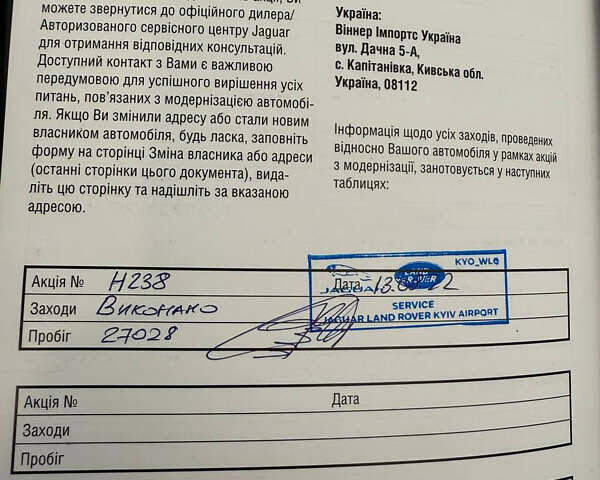 можете звернутися до офіційного дилера/
Авторизованого сервісного центру Jaguar
для отримання відповідних консультацій.
Доступний контакт з Вами є важливою
передумовою для успішного вирішення усіх
питань, пов'язаних з модернізацією автомобі-
ля. Якщо Ви змінили адресу або стали новим
власником автомобіля, будь ласка, заповніть
форму на сторінці Зміна власника або адреси
(останні сторінки цього документа), вида-
літь цю сторінку та надішліть за вказаною
адресою.
Україна:
Віннер Імпортс Україна
вул. Дачна 5-А,
с. Капітанівка, Кивська обл.
Україна, 08112
Інформація щодо усіх заходів, проведених
відносно Вашого автомобіля у рамках акцій
з модернізації, занотовується у наступних
таблицях:
KYO_WL0
Акція № H238 Дата 13. 22
JAGUAR LAND ROVER
Заходи Виконано
SERVICE
JAGUAR LAND ROVER KYIV AIRPORT
Пробіг 27028
Акція № Дата
Заходи
Пробіг